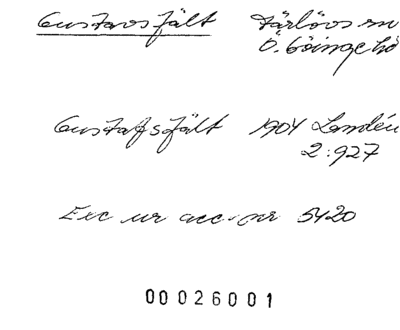 Gustavsfält Färlövs sn
Ö. Göinge hd
Gustafsfält 1904 Landén
2:927
Exc ur acc.nr 5420
00026001